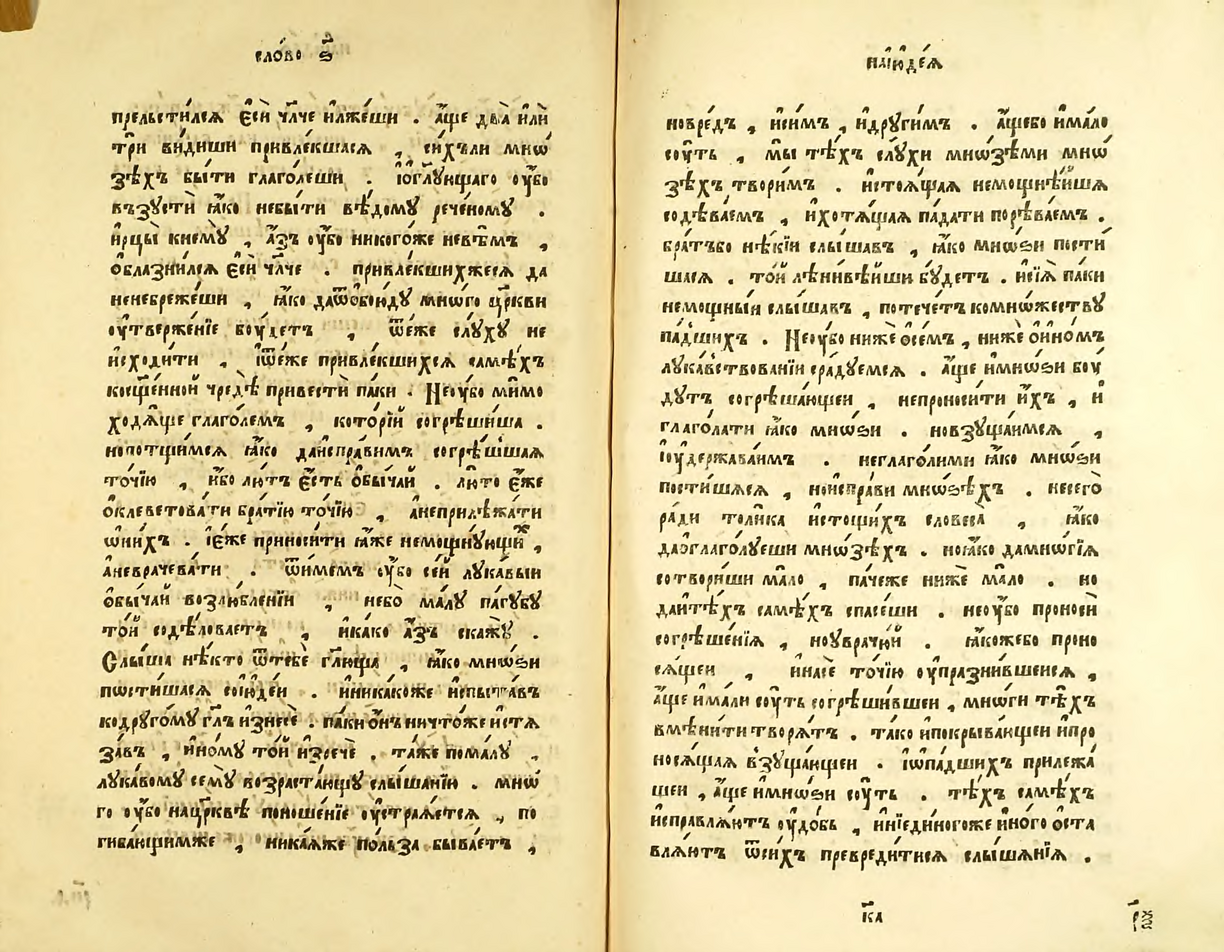 сло́во ѕ҃
прельсти́лсѧ є҆сѝ чл҃че и҆лже́ши . а҆́ще два̀ и҆лѝ
трѝ ви́диши привле́кшасѧ , си́хъли мнѡ́
зѣхъ бы́ти глаго́леши . і҆ѻглꙋ́шаго ᲂу҆̀бо
въꙁꙋстѝ ꙗ҆́ко небы́ти вѣ́домꙋ рече́номꙋ .
и҆рцы̀ кнемꙋ̀ , а҆́зъ ᲂу҆̀бо никого́же невѣ́мъ ,
ѻ҆блазни́лсѧ є҆сѝ чл҃че . привле́кшихжесѧ да
ненебреже́ши , ꙗ҆́ко даѿѻбои́дꙋ мно́го цр҃кви
ᲂу҆твержде́нїе бꙋ́детъ , ѿе́же слꙋ́хꙋ не
и҆сходи́ти , і҆ѿе́же привле́кшихсѧ самѣ́хъ
косщ҃е́нной чредѣ̀ привестѝ па́ки . Неᲂу҆̀бо мимо
ходѧ́ще глаго́лемъ , кото́рїй согрѣши́ша .
нопотщи́мсѧ ꙗ҆́ко даи҆спра́вимъ согрѣ́шшаѧ
то́чїю , и҆́бо лю́тъ є҆́сть ѻ҆бы́чай . лю́то є҆́же
ѻ҆клевѣтова́ти бра́тїю то́чїю , а҆неприлѣжа́ти
ѡ҆ни́хъ . і҆є҆́же приноси́ти ꙗ҆́же немощнꙋ́ющиⷯ ,
а҆неврачева́ти . ѿи́мемъ ᲂу҆̀бо се́й лꙋка́вый
ѻ҆бы́чай возлю́бленїи , небо̀ ма́лꙋ па́гꙋбꙋ
то́й содѣ́ловаетъ , и҆ка́ко а҆́зъ скажꙋ̀ .
Слы́ша нѣ́кто ѿтебѐ гл҃юща , ꙗ҆́ко мно́ѕи
пѡсти́шасѧ сою҆де́и . и҆ника́коже и҆спыта́въ
кодрꙋго́мꙋ гл҃ъ и҆знесѐ . па́ки ѻ҆́нъ ничто́же и҆стѧ
за́въ , и҆но́мꙋ то́й и҆зречѐ . та́же пома́лꙋ ,
лꙋка́вомꙋ семꙋ̀ возраста́ющꙋ слы́шанїю . мнѡ́
го ᲂу҆̀бо нацр҃квѣ поноше́нїе ᲂу҆страѧ́етсѧ , по
гиба́ющимже , никаѧ́же по́льза быва́етъ ,
наїю҆де́ѧ
новре́дъ , и҆си́мъ , и҆дрꙋги́мъ . а҆́щебо и҆ма́ло
сꙋ́ть , мы̀ тѣ́хъ слꙋ́хи мнѡ́зѣми мнѡ́
зѣхъ твори́мъ . и҆стоѧ́щаѧ немощнѣ́йшѧ
содѣва́емъ , и҆хотѧ́щаѧ па́дати порѣва́емъ .
бра́тъбо нѣ́кїи слы́шавъ , ꙗ҆́ко мно́ѕи пости́
шасѧ . то́й лѣни́вѣйши бꙋ́детъ . и҆сїѧ̀ па́ки
немощны́и слы́шавъ , потече́тъ комно́жествꙋ
па́дшихъ . Неᲂу҆̀бо нижѐ ѻ҆се́мъ , нижѐ ѻ҆и҆но́мъ
лꙋка́вствованїи сра́дꙋемсѧ . а҆́ще и҆мно́ѕи бꙋ́
дꙋтъ согрѣша́ющеи , непроноси́ти и҆́хъ , и҆
глаго́лати ꙗ҆́ко мно́ѕи . новзꙋща́имсѧ ,
і҆ᲂу҆держава́имъ . неглаго́лими ꙗ҆́ко мно́ѕи
пости́шасѧ , нои҆спра́ви мно́ѕѣхъ . несего̀
ра́ди толи́ка и҆сто́щихъ словеса̀ , ꙗ҆́ко
даѻ҆глаго́лꙋеши мнѡ́зѣхъ . ноꙗ҆́ко дамнѡ́гїѧ
сотвори́ши ма́ло , па́чеже нижѐ ма́ло . но
даи҆тѣ́хъ самѣ́хъ спасе́ши . неᲂу҆̀бо проносѝ
согрѣше́нїѧ , ноᲂу҆врачꙋ́й . ꙗ҆́кожебо проно
сѧ́щеи , и҆насѐ то́чїю ᲂу҆праꙁни́вшеисѧ ,
а҆́ще и҆ма́ли сꙋ́ть согрѣши́вшеи , мно́ги тѣ́хъ
вмѣни́ти творѧ́тъ . та́ко и҆покрыва́ющеи и҆про
носѧ́щаѧ взꙋща́ющеи . і҆ѡпа́дшихъ прилежа́
щеи , а҆́ще и҆мно́ѕи сꙋ́ть . тѣ́хъ самѣ́хъ
и҆справлѧ́ютъ ᲂу҆до́бь , и҆ниѐди́ногоже и҆но́го ѻ҆ста
влѧ́ютъ ѿси́хъ превреди́тисѧ слы́шанїѧ .
к҃а